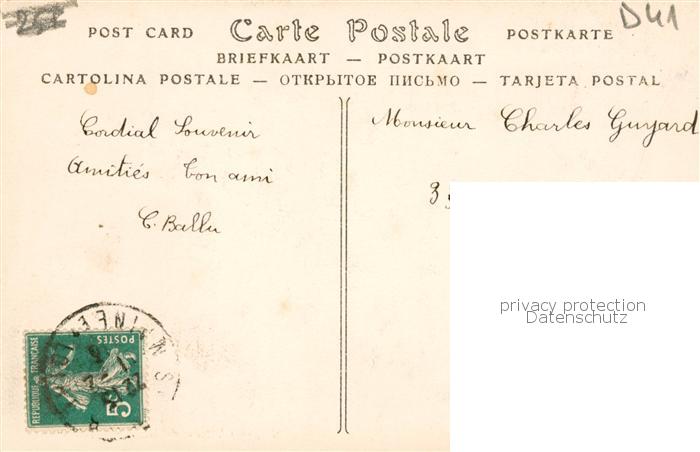 D41
POST CARD Carte Postale POSTKARTE
BRIEFKAART — POSTKAART
CARTOLINA POSTALE — ОТКРЫТОЕ ПИСЬМО — TARJETA POSTAL
Cordial Souvenir
Amitiés Ton ami
C. Ballu
Monsieur Charles Guyard
privacy protection
Datenschutz
POSTES
REPUBLIQUE FRANÇAISE
5